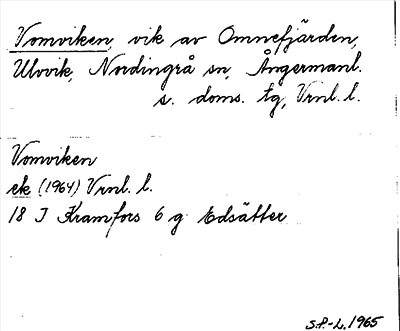 Vomviken, vik av Omnefjärden,
Ulvvik, Nordingrå sn, Ångermanl.
s. doms. tg, Vrnl. l.
Vomviken
ek (1964) Vrnl. l.
18 I Kramfors 6 g Edsätter
S.P-L. 1965